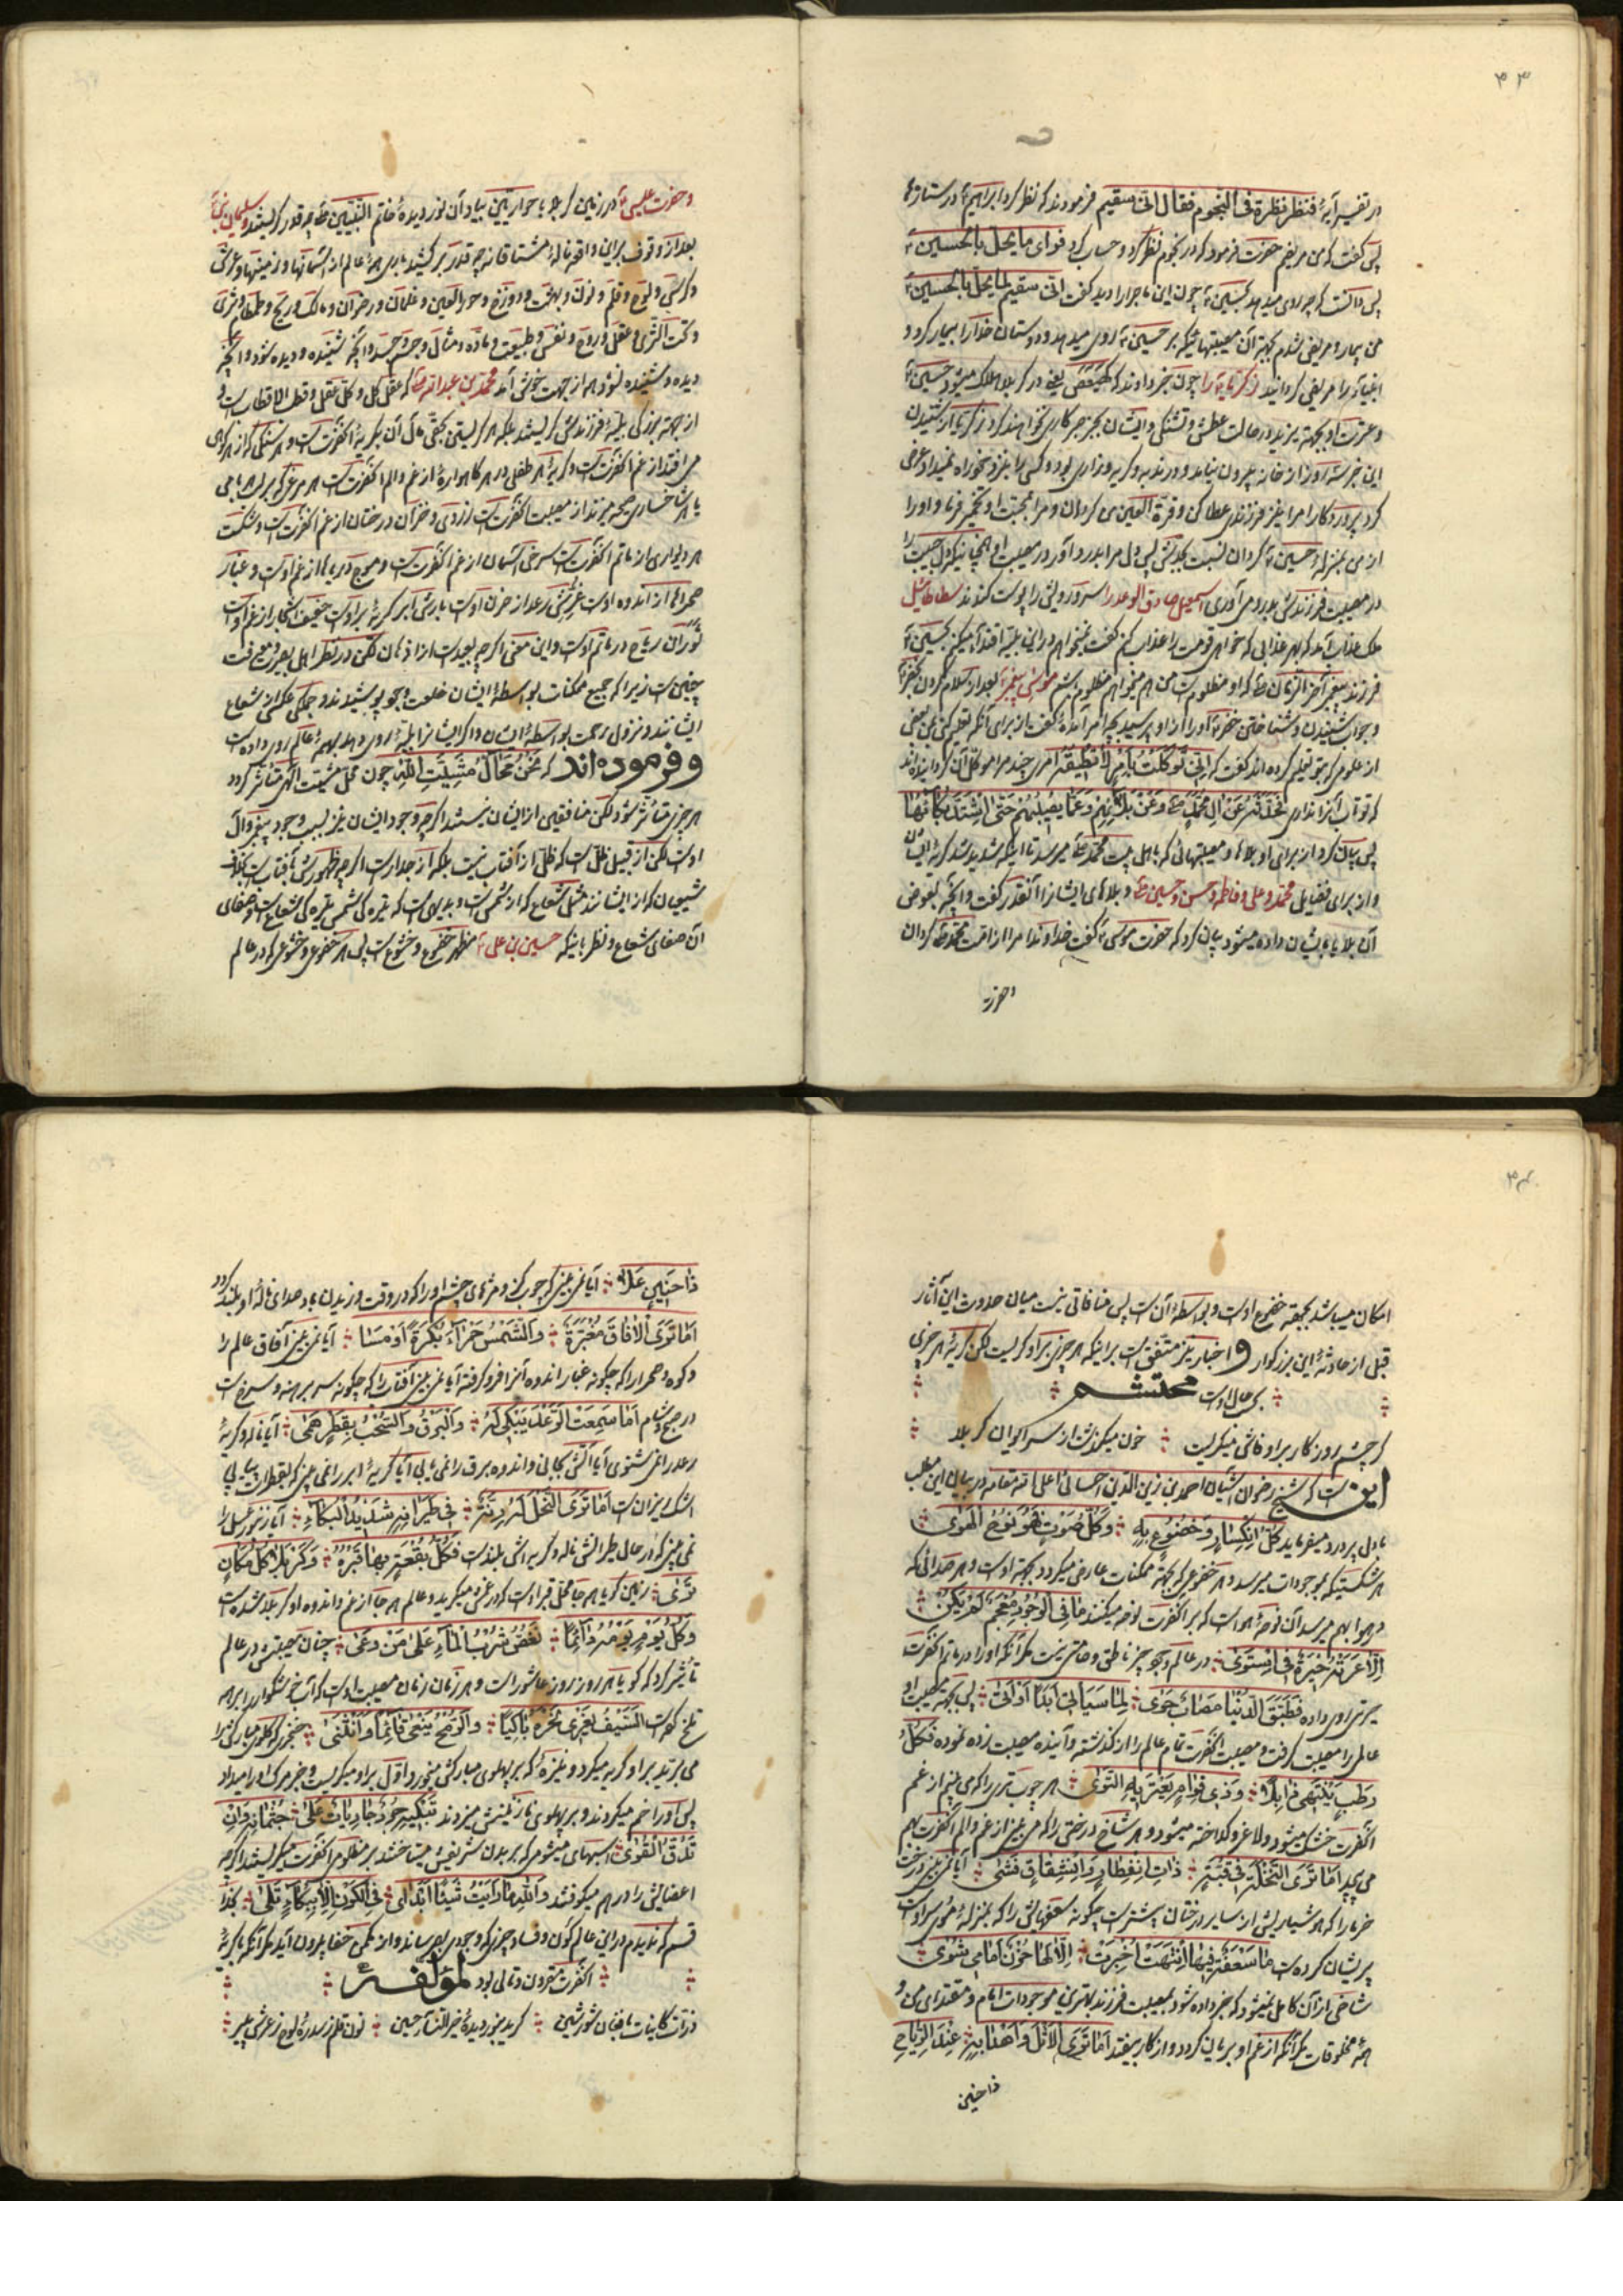 ۳۳
در تفسیر آیهٔ فنظر نظرة فی النجوم فقال انی سقیم فرمودند که نظر کرد ابراهیم ع در ستارهٔ
پس گفت که من مریضم حضرت فرمود که در نجوم نظر کرد و حساب کرد فرای ما یحل بالحسین ع
پس دانست که چه روی میدهد بحسین ع چون این ماجرا را دید گفت انی سقیم لما یحل بالحسین ع
من بیمار و مریض شدم بجهة آن مصیبتهائیکه بر حسین ع روی میدهد و دوستان خدا را بیمار کرد و
انبیاء را مریض گردانید زکریا ع را چون خبر دادند که کهیعص یعنی در کربلا هلاک میشود حسین ع
و عترت او بجهة یزید در حالت عطش و تشنگی و ایشان بجز صبر کاری نخواهند کرد زکریا از شنیدن
این خبر سه روز از خانه بیرون نیامد و در ندبه و گریه و زاری بود و کسی را بنزد خود راه نمیداد و عرض
کرد پروردگارا مرا نیز فرزندی عطا کن و قرة العین من گردان و مرا بمحبت او و اورا
از من بمنزلهٔ حسین ع گردان نسبت بجدش پس دل مرا بدرد آور در مصیبت او همچنانیکه دل حبیب را
در مصیبت فرزندش بدرد می آوری اسمعیل صادق الوعد را سر و رویش را پوست کندند سطاطائیل
ملک عذاب آمد که بهر عذابی که خواهی قومت را عذاب کنم گفت نمیخواهم در این بلیه اقتدا میکنم بحسین ع
فرزند پیغمبر آخر الزمان ص که او مظلوم است من هم میخواهم مظلوم باشم موسی پیغمبر ع بعد از سلام کردن بخضر ع
و جواب شنیدن و شناختن خضر ع او را از او پرسید بچه امر آمدهٔ گفت از برای آنکه تعلیم کنی بمن بعضی
از علومی که بتو تعلیم کرده اند گفت که انی توکلت بامر لا تطیقه امری چند مرا موکل آن گردانیده اند
که تو تاب آنرا نداری نحدثه عن آل محمد ص و عن بلائهم و عما یصیبهم حتی اشتد بکائهما
پس بیان کرد از برای او بلاها و مصیبتهائی که باهل بیت محمد ص میرسد تا اینکه شدید شد گریهٔ ایشان
و از برای فضایل محمد و علی و فاطمه و حسن و حسین ص و بلاهای ایشانرا آنقدر گفت و آنچه بعوض
آن بلایا بایشان داده میشود بیان کرد که حضرت موسی ع گفت خداوندا مرا از امت محمد ص گردان
و حضرت
و حضرت عیسی ع در زمین کربلا با حواریین بیاد آن نور دیدهٔ خاتم النبیین ص چه قدر گریستند و سلیمان نبی ع
بعد از وقوف براین واقعه نالهٔ مشتاقانه چه قدر بر کشید باری همهٔ عالم از آسمانها و زمینها و عرش
و کرسی و لوح و قلم و نون و بهشت و دوزخ و حور العین و غلمان و رضوان و مالک و ریح و طمطام و ثری
و تحت الثری و عقل و روح و نفس و طبیعت و ماده و مثال و جسم و جسد و آنچه شنیده و دیده شود و آنچه
دیده و شنیده نشود هر از جهت خوش آمد محمد بن عبدالله ص که عقل کل و کل عقل و قطب الاقطاب است و
از جهة بزرگی بلیهٔ فرزندش گریستند بلکه هر گریستن بحقی مآل آن بگریهٔ آنحضرت است و هر سنگی که از هر کوهی
می افتد از غم آنحضرت است و گریهٔ هر طفلی در هر گاهوارهٔ از غم و الم آنحضرت است هر مرغی که بر لب بامی
یا شاخساری صیحه میزند از مصیبت آنحضرت است زردی و خزان درختان از غم آنحضرت است و شکست
هر دیواری از ماتم آنحضرت است سرخی آسمان از غم آنحضرت است و موج دریاها از غم اوست و غبار
صحراها از اندوه اوست غرش رعد از حزن اوست بارش ابر گریهٔ براوست حفیف اشجار از غم اوست
ثوران ریاح در ماتم اوست و این معنی اگر چه بعید است از اذهان لکن در نظر اهل بصیرت و معرفت
چنین است زیرا که جمیع ممکنات بواسطهٔ ایشان خلعت وجود پوشیدند و جملگی عکس از شعاع
ایشانند و نزول رحمت بواسطهٔ ایشان و اگر ایشانرا بلیهٔ روی دهد بهمهٔ عالم روی داده است
و فرموده اند که نحن محال مشیت الله چون محل مشیت الهی متأثر گردد
هر چیزی متأثر شود لکن منافقین از ایشان نیستند اگر چه وجود ایشان نیز بسبب وجود پیغمبر و آل
اوست لکن از قبیل ظل است که ظل از آفتاب نیست بلکه از جدار است اگر چه ظهورش بآفتاب است بخلاف
شیعیان که از ایشانند مثل شعاع که از شمس است و بدیهی است که تیره گی شمس تیره گی شعاع است و صفای
آن صفای شعاع و نظر باینکه حسین بن علی ع مظهر خضوع و خشوع است پس هر خضوع و خشوعی که در عالم
۳۴
امکان میباشد بجهة خضوع اوست و بواسطهٔ آن است پس منافاتی نیست میان حدوث این آثار
قبل از حادثهٔ این بزرگوار و اخبار نیز متفق است براینکه هر چیزی براو گریست لکن گریهٔ هر چیزی
بحسب حال اوست محتشم
گر چشم روزگار براو فاش میگریست خون میگذشت از سر ایوان کربلا
این است که شیخ رضوان آشیان احمد بن زین الدین احسائی اعلی الله مقامه در بیان این مطلب
با دلی پر درد میفرماید کل انکسار و خضوع به و کل صوت فهو نوح الهوی
هر شکستیکه بموجودات میرسد و هر خضوعی که بجهة ممکنات عارض میگردد بجهة اوست و هر صدائی که
در هوا بهم میرسد آن نوحهٔ هوا است که بر آنحضرت نوحه میکند ما فی الوجود معجم لم یکن
الا عرته حیرة فاستوی در عالم وجود چیز ناطق و صامتی نیست مگر آنکه او را در ماتم آنحضرت
حیرتی روی داده فطبق الدنیا مصاب جوی لما سیاتی ابدا او اتی پس بجهة مصیبت او
عالمی را مصیبت گرفت و مصیبت آنحضرت تمام عالم را از گذشته و آینده مصیبت زده نموده فکل
رطب ینتهی ذابلا و ذی قوام یعتریه التوی هر چوب تری را که می بینم از غم
آنحضرت خشک میشود و لاغر و گداخته میشود و هر شاخ درختی را که می بینی از غم و الم آنحضرت بهم
می پیچد اما تری النخلة فی قبة ذات انفطار و انشقاق فشی آیا نمی بینی درخت
خرما را که هوشیاریش از سایر درختان بیشتر است چگونه سعفهایش را که بمنزلهٔ موی سر اوست
پریشان کرده است ما سعفة فیها انتهت اخبرت الا لها حزن امامی شوی
شاخی از آن کامل نمیشود که خبر داده شود بمصیبت فرزند بهترین موجودات امام و مقتدای من و
همهٔ مخلوقات مگر آنکه از غم او بریان گردد و از کار بیفتد اما تری الاثل و اهدابه عند الریاح
ذا حنین
ذا حنین علا آیا نمی بینی که چوب گز و مژهای چشم او را که در وقت وزیدن باد صدای نالهٔ او بلند گردد
اما تری الافاق مغبرة و الشمس حمرآء بکرة او مسا آیا نمی بینی آفاق عالم را
و کوه و صحرا را که چگونه غبار اندوه آنرا فرو گرفته آیا نمی بینی آفتاب را که چگونه سر برهنه و سرخ است
در صبح و شام اما سمعت الرعد یبکی له و البرق و السحب بقطر همی آیا ناله و گریهٔ
رعد را نمی شنوی آیا آتش بجانی و اندوه برق را نمی یابی آیا گریهٔ ابر را نمی بینی که بقطرات پیاپی
اشک ریزان است اما تری النحل له رنة فی طیرانه شدید البکآء آیا زنبور عسل را
نمی بینی که در حال طیرانش ناله و گریه اش بلند است فکل بقعة بها قبره و کربلا کل مکان
تری زمین گویا هر جا محل قبر اوست که در عزمی میگرید و عالم هر جا از غم و اندوه او کربلا شده است
و کل یوم یومه دائما تغص شرب المآء علی من وعی چنان مصیبتش در عالم
تأثیر کرد که گویا هر روز روز عاشورا است و هر زمان زمان مصیبت اوست که آب خوشگوار را براهل
تلخ نموده است السیف یفری نحره باکیا و الرمح ینعی قائما و انثنی خنجری که گلوی مبارکش را
می برید براو گریه میکرد و نیزهٔ که بر پهلوی مبارکش میخورد اول براو میگریست و خبر مرگ او را میداد
پس او را خم میکردند و بر پهلوی نازنینش میزدند تبکیه جرد جاریات علی جثمانه و ان
تدق القوی اسبهای میشومی که بر بدن شریفش میتاختند بر مظلومی آنحضرت میگریستند اگر چه
اعضایش را در هم میکوفتند و الله ما رایت شیئا ابتدی فی الکون الا ببکآء تلی بخدا
قسم که ندیدم در این عالم کون و فساد چیزی که وجودی بهم رساند و از مکمن خفا بیرون آید مگر آنکه با گریهٔ
آنحضرت مقرون و تالی بود لمؤلفه
ذرات کاینات بافغان و شور و شین گرید بنور دیدهٔ خیر النسآء حسین نون و قلم ز سدره و لوح و ز عرش پیر